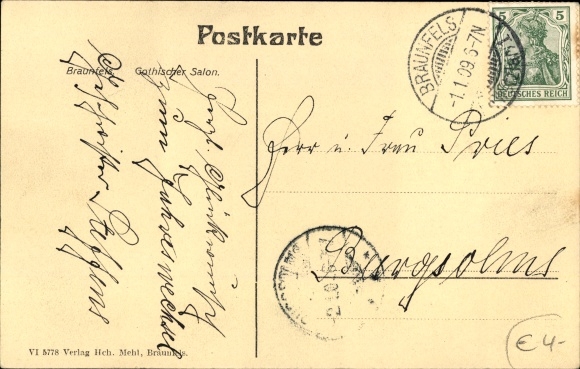 Postkarte
Braunfels. Gothischer Salon.
BRAUNFELS
-1.1.09.6-7N
5 5
DEUTSCHES REICH
Herr u. Frau Pries
Burgsolms
Herzl. Glückwunsch
zum Jahreswechsel
Steffens
VI 5778 Verlag Hch. Mehl, Braunfels.
€4-